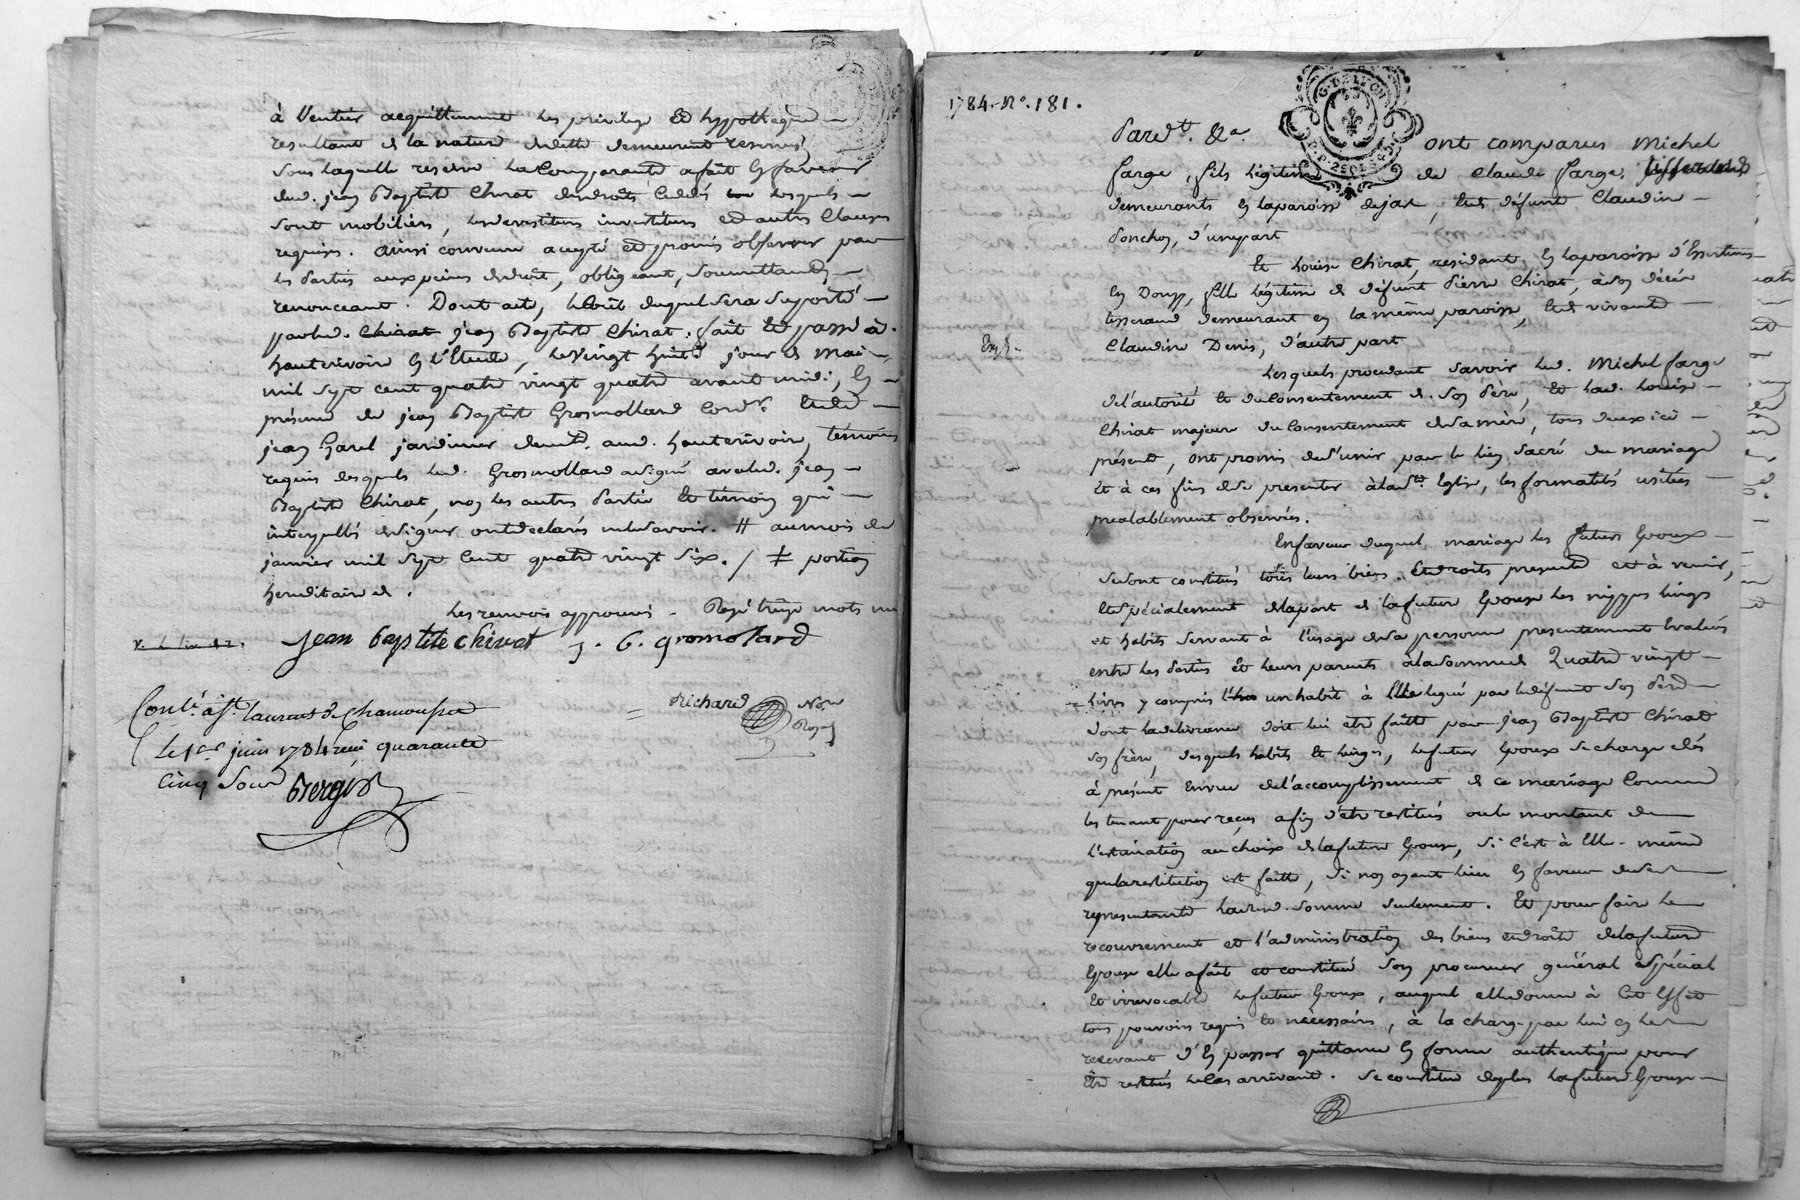 à l'entier acquittement les privilege et hypotheque
resultant de la nature de dette demeurant reservés
sous laquelle reserve la Comparante a fait en faveur
dud. jean Baptiste Chirat des droits Cedés lesquels
sont mobiliers, les devestitures investitures et autres Clauses
requises. ainsi convenu accepté et promis observer par
les parties aux peines de droit, obligeant, soumettant,
renonceant. Dont acte, le Coût duquel sera suporté
par led. Chirat jean Baptiste Chirat. fait et passé à
hauterivoire en l'Etude, le vingt huit jour de mai
mil sept cent quatre vingt quatre avant midi, en
présence de jean Baptiste Grosmolland Cord.r et de
jean Garel jardinier dem.t aud. hauterivoire, témoins
requis desquels led. Grosmolland a signé avec led. jean
Baptiste Chirat, non les autres Partie et témoin qui
interpellés de signer ont déclarés ne le savoir. # au mois de
janvier mil sept Cent quatre vingt six. / ‡ portion
hereditaire de.
Les renvois approuvés - Rayé treize mots nu
jean baptite chirat j. b. gromolard
Richard No.re Roy.l
Cont.é à S.t Laurent de Chamousset
le 1.er juin 1784 reçu quarante
Cinq Sous Bergis
1784. N.o 181.
G. DE LYON
Pard.t &a ont comparus Michel
farge, fils légitime de Claude farge,
demeurants en la paroisse de jas, et de défunte Claudine
Ponchon, d'une part
Et Louise Chirat, residant en la paroisse d'Essertines
en Donzy, fille légitime de défunt Pierre Chirat, à son décés
tisserand demeurant en la même paroisse, et de vivante
Claudine Denis, d'autre part
Exp.é
Lesquels procedant savoir led. Michel farge
de l'autorité et du Consentement de son Père, et lad. Louise
Chirat majeure du Consentement de sa mère, tous deux ici
présents, ont promis de s'unir par le lien sacré du mariage
et à ces fins de se presenter à la s.te Eglise, les formalités usitées
prealablement observées.
En faveur duquel mariage les futurs Epoux
se sont constitués tous leurs biens et droits presents et à venir,
et spécialement de la part de la future Epouse les nippes linges
et habits servant à l'usage de sa personne presentement Evalués
entre les Parties et leurs parents à la somme de Quatre vingt
livres y compris un habit à Elle legué par led. défunt son Père
dont la delivrance doit lui etre faitte par jean Baptiste Chirat
son frère, desquels habits et linges, le futur Epoux se charge dès
à présent en vue de l'accomplissement de ce mariage Comme
les tenant pour reçus afin d'etre restitués ou le montant de
l'estimation au choix de la future Epouse, si c'est à Elle-même
que la restitution est faitte, si non ayant lieu en faveur de ses
representants lad. somme seulement. Et pour faire le
recouvrement et l'administration des biens et droits de la future
Epouse elle a fait et constitué son procureur général spécial
et irrevocable le futur Epoux, auquel elle donne à Cet Effet
tous pouvoirs requis et nécessaires, à la charge par lui en le
recevant d'En passer quittance en forme authentique pour
Etre restitués le Cas arrivant. Se constitue deplus la future Epouse